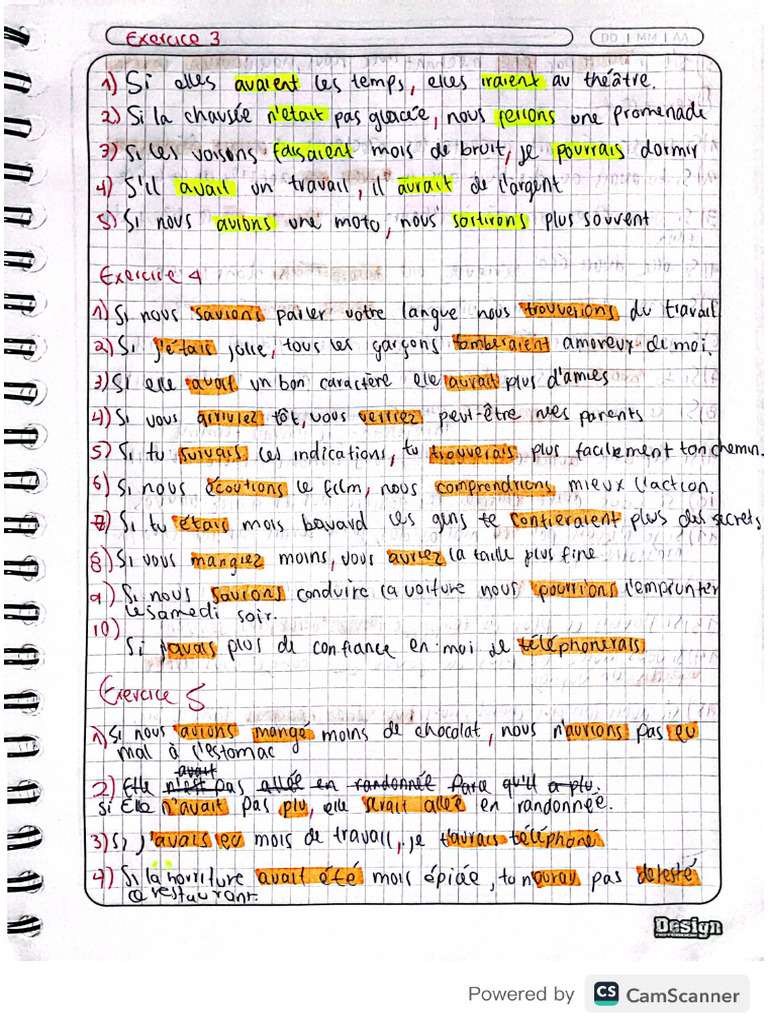 Exercice 3
DD | MM | AA
1) Si elles avaient les temps, elles iraient au théâtre.
2) Si la chausée n'était pas glacée, nous ferions une promenade
3) Si les voisons faisaient mois de bruit, je pourrais dormir
4) S'il avait un travail, il aurait de l'argent
5) Si nous avions une moto, nous sortirons plus souvent
Exercice 4
1) Si nous savions parler votre langue nous trouverions du travail
2) Si j'étais jolie, tous les garçons tomberaient amoreux de moi.
3) Si elle avait un bon caractère elle aurait plus d'amies
4) Si vous arriviez tôt, vous verriez peut-être mes parents
5) Si tu suivais les indications, tu trouverais plus facilement ton chemin.
6) Si nous écoutions le film, nous comprendrions mieux l'action.
7) Si tu étais mois bavard les gens te confieraient plus des secrets
8) Si vous mangiez moins, vous auriez la taille plus fine
9) Si nous savions conduire la voiture nous pourrions l'emprunter
le samedi soir.
10)
Si j'avais plus de confiance en moi je téléphonerais
Exercice 5
1) Si nous avions mangé moins de chocolat, nous n'aurions pas eu
mal à l'estomac
avait
2) Elle n'est pas allée en randonnée Parce qu'il a plu.
Si Elle n'avait pas plu, elle serait allée en randonnée.
3) Si j'avais eu mois de travail, je t'aurais téléphoné
4) Si la norriture avait été mois épicée, tu pas detesté
restaurant.
Design
Powered by CS CamScanner